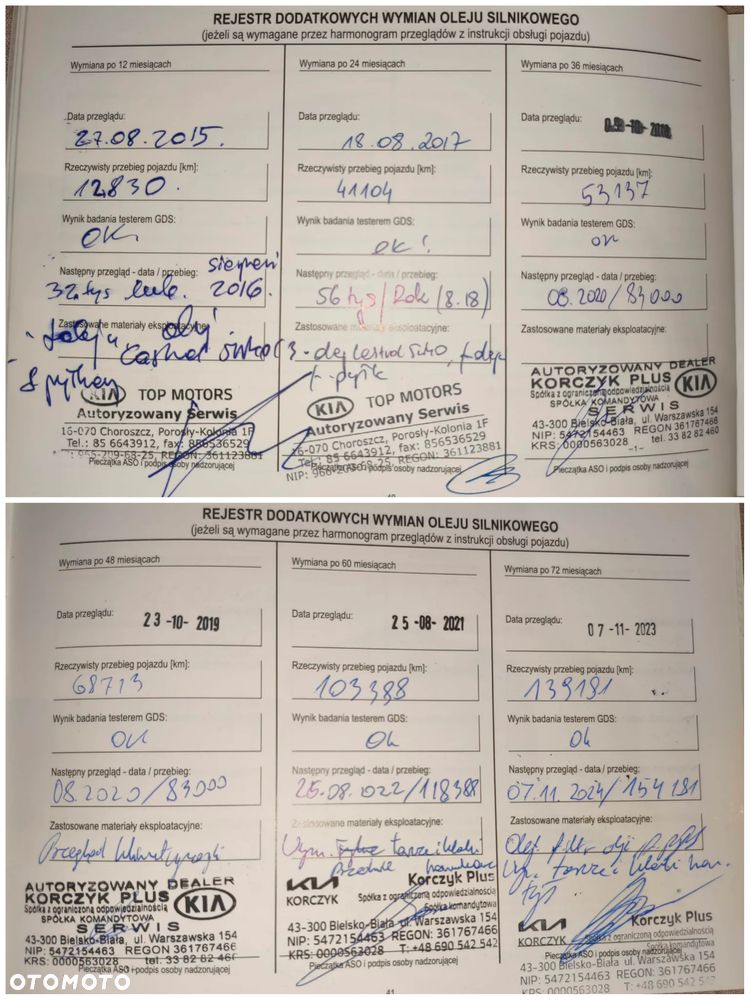 REJESTR DODATKOWYCH WYMIAN OLEJU SILNIKOWEGO
(jeżeli są wymagane przez harmonogram przeglądów z instrukcji obsługi pojazdu)
Wymiana po 12 miesiącach
Data przeglądu:
27.08.2015.
Rzeczywisty przebieg pojazdu [km]:
12830.
Wynik badania testerem GDS:
OK
Następny przegląd - data / przebieg:
sierpień
32 tys lub. 2016.
Zastosowane materiały eksploatacyjne:
olej
KIA TOP MOTORS
Autoryzowany Serwis
16-070 Choroszcz, Porosły-Kolonia 1F
Tel.: 85 6643912, fax: 856536529
REGON: 361123881
Pieczątka ASO i podpis osoby nadzorującej
Wymiana po 24 miesiącach
Data przeglądu:
18.08.2017
Rzeczywisty przebieg pojazdu [km]:
41104
Wynik badania testerem GDS:
ok!
Następny przegląd - data / przebieg:
56 tys/Rok (8.18)
Zastosowane materiały eksploatacyjne:
KIA TOP MOTORS
Autoryzowany Serwis
16-070 Choroszcz, Porosły-Kolonia 1F
Tel.: 85 6643912, fax: 856536529
NIP: 966-209-68-25, REGON: 361123881
Pieczątka ASO i podpis osoby nadzorującej
Wymiana po 36 miesiącach
Data przeglądu:
Rzeczywisty przebieg pojazdu [km]:
53137
Wynik badania testerem GDS:
ok
Następny przegląd - data / przebieg:
08.2020/83000
Zastosowane materiały eksploatacyjne:
AUTORYZOWANY DEALER
KORCZYK PLUS KIA
Spółka z ograniczoną odpowiedzialnością
SPÓŁKA KOMANDYTOWA
SERWIS
43-300 Bielsko-Biała, ul. Warszawska 154
NIP: 5472154463 REGON 361767466
KRS: 0000563028 tel. 33 82 82 460
-1-
Pieczątka ASO i podpis osoby nadzorującej
REJESTR DODATKOWYCH WYMIAN OLEJU SILNIKOWEGO
(jeżeli są wymagane przez harmonogram przeglądów z instrukcji obsługi pojazdu)
Wymiana po 48 miesiącach
Data przeglądu:
23-10-2019
Rzeczywisty przebieg pojazdu [km]:
68713
Wynik badania testerem GDS:
ok
Następny przegląd - data / przebieg:
08.2020/83000
Zastosowane materiały eksploatacyjne:
Przegląd
AUTORYZOWANY DEALER
KORCZYK PLUS KIA
Spółka z ograniczoną odpowiedzialnością
SPÓŁKA KOMANDYTOWA
SERWIS
43-300 Bielsko-Biała, ul. Warszawska 154
NIP: 5472154463 REGON 361767466
KRS: 0000563028 tel. 33 82 82 460
Pieczątka ASO i podpis osoby nadzorującej
Wymiana po 60 miesiącach
Data przeglądu:
25-08-2021
Rzeczywisty przebieg pojazdu [km]:
103388
Wynik badania testerem GDS:
Ok
Następny przegląd - data / przebieg:
25.08.2022/118388
Zastosowane materiały eksploatacyjne:
Wym. tarcze i klocki
przednie hamulcowe
KIA Korczyk Plus
KORCZYK Spółka z ograniczoną odpowiedzialnością
Spółka komandytowa
43-300 Bielsko-Biała ul. Warszawska 154
NIP: 5472154463 REGON: 361767466
KRS: 0000563028 T.: +48 690 542 542
Pieczątka ASO i podpis osoby nadzorującej
41
Wymiana po 72 miesiącach
Data przeglądu:
07-11-2023
Rzeczywisty przebieg pojazdu [km]:
139181
Wynik badania testerem GDS:
Ok
Następny przegląd - data / przebieg:
07.11.2024/154181
Zastosowane materiały eksploatacyjne:
Olej, filtr olej
Wym. tarcze i klocki ham.
tył
KIA Korczyk Plus
KORCZYK Spółka z ograniczoną odpowiedzialnością
Spółka komandytowa
43-300 Bielsko-Biała ul. Warszawska 154
NIP: 5472154463 REGON: 361767466
KRS: 0000563028 T.: +48 690 542 542
Pieczątka ASO i podpis osoby nadzorującej
OTOMOTO